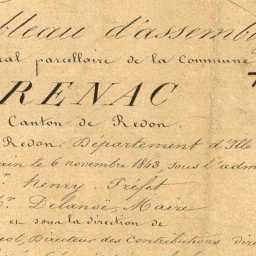 bleau d'assembl
ral parcellaire de la Commune
RENAC
Canton de Redon.
Redon, Département d'Ille
ain le 6 novembre 1843 sous l'adm
r. Henry, Préfet
r. Delanoë, Maire
et sous la direction de
Directeur des Contributions dire